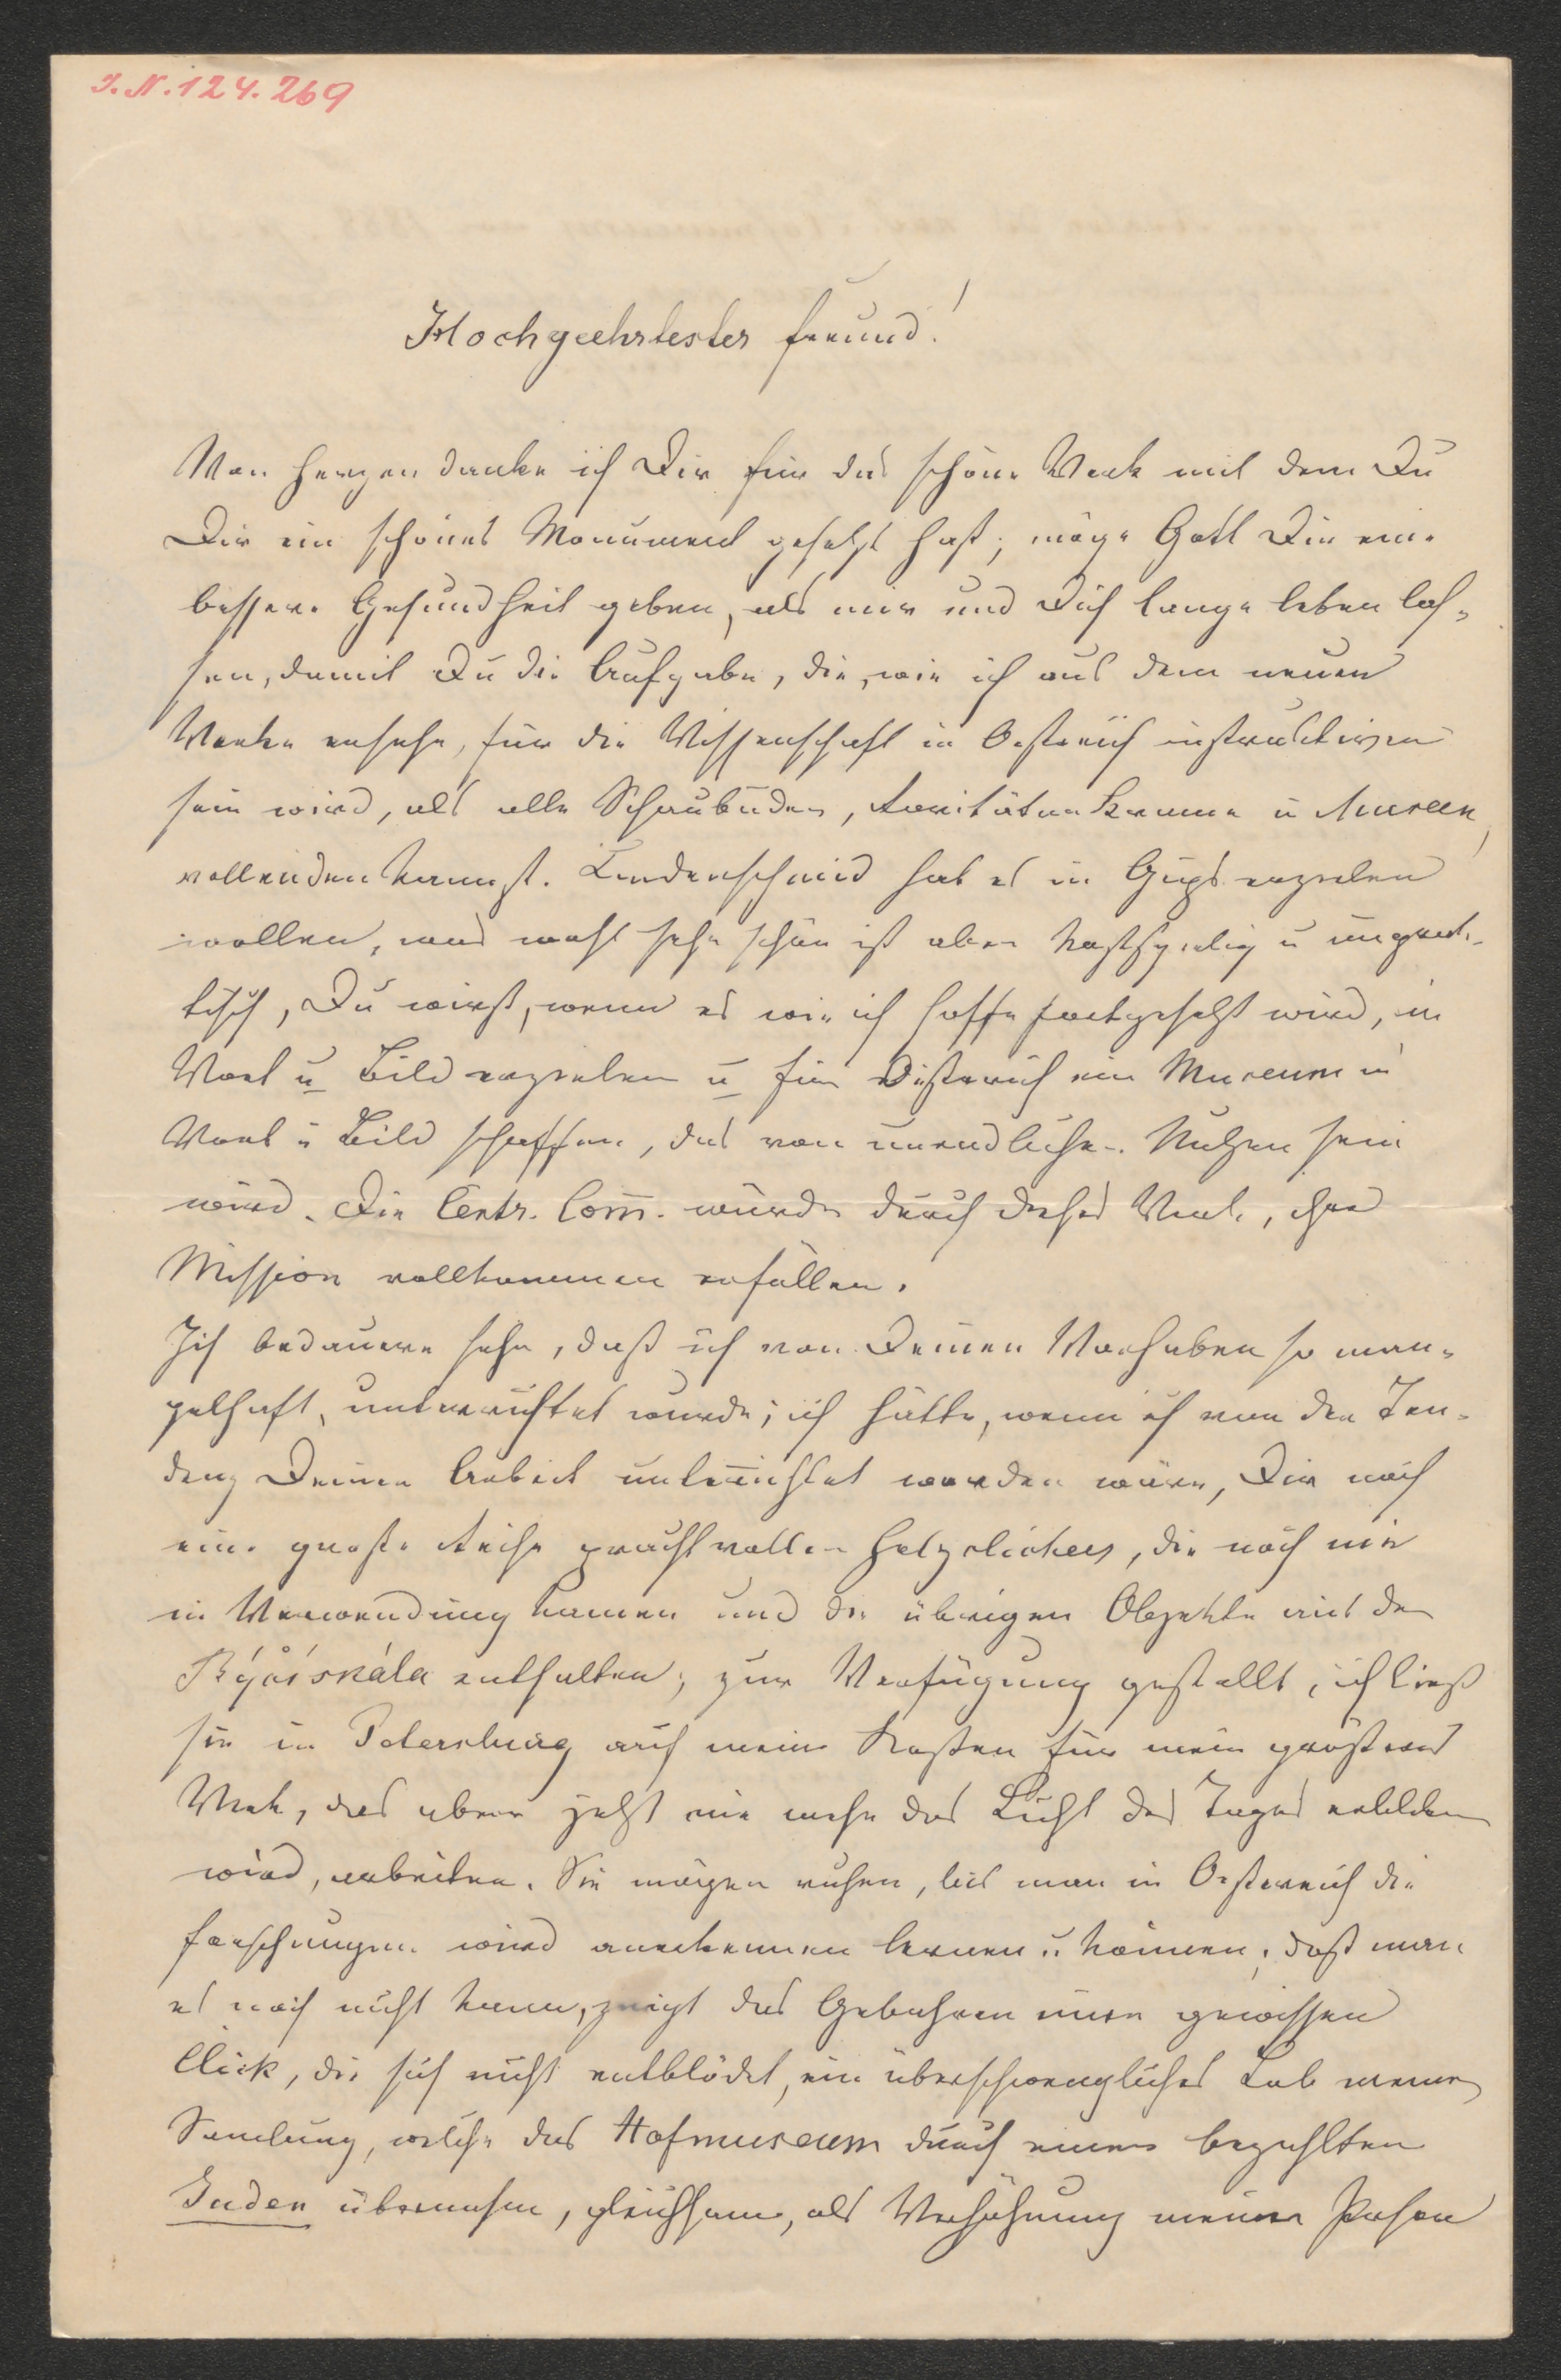 I. N. 124.269
Hochgeehrtester Freund!
Von Herzen danke ich Dir für das schöne Werk mit dem Du
Dir ein schönes Monument gesetzt hast; möge Gott Dir eine
bessere Gesundheit geben, als mir und Dich lange leben las=
sen, damit Du die Aufgabe, die, wie ich aus dem neuen
Werke ersehe, für die Wissenschaft in Oestreich instructiver
sein wird, als alle Schaubuden, Raritätenkrame u Museen,
vollenden kannst. Lindenschmid hat es in Gyps erzielen
wollen, was wohl sehr schön ist aber kostspielig u unprak=
tisch, Du wirst, wenn es wie ich hoffe fortgesetzt wird, in
Wort u Bild erzielen u für Oesterreich ein Museum in
Wort u Bild schaffen, das von unendlichen Nutzen sein
wird. Die Centr. Com̄. würde durch dieses Werk, ihre
Mission vollkommen erfüllen.
Ich bedauere sehr, daß ich von Deinen Vorhaben so man=
gelhaft, unterrichtet wurde; ich hätte, wenn ich von der Ten=
denz Deiner Arbeit unterrichtet worden wäre, Dir noch
eine große Reihe prachtvollen Holzclichees, die noch nie
in Verwendung kamen und die übrigen Objekte aus der
Býčiskála enthalten, zur Verfügung gestellt, ich ließ
sie in Petersburg auf meine Kosten für mein größeres
Werk, das aber jetzt nie mehr das Licht des Tages erblicken
wird, arbeiten. Sie mögen ruhen, bis man in Oesterreich die
Forschungen wird anerkennen lernen u können, daß man
es noch nicht kann, zeigt das Gebahren einer gewissen
Click, die sich nicht entblödet, ein überschwengliches Lob meiner
Samlung, welche das Hofmuseum durch einen bezahlten
Juden übernahm, gleichsam, als Verhöhnung meiner Person